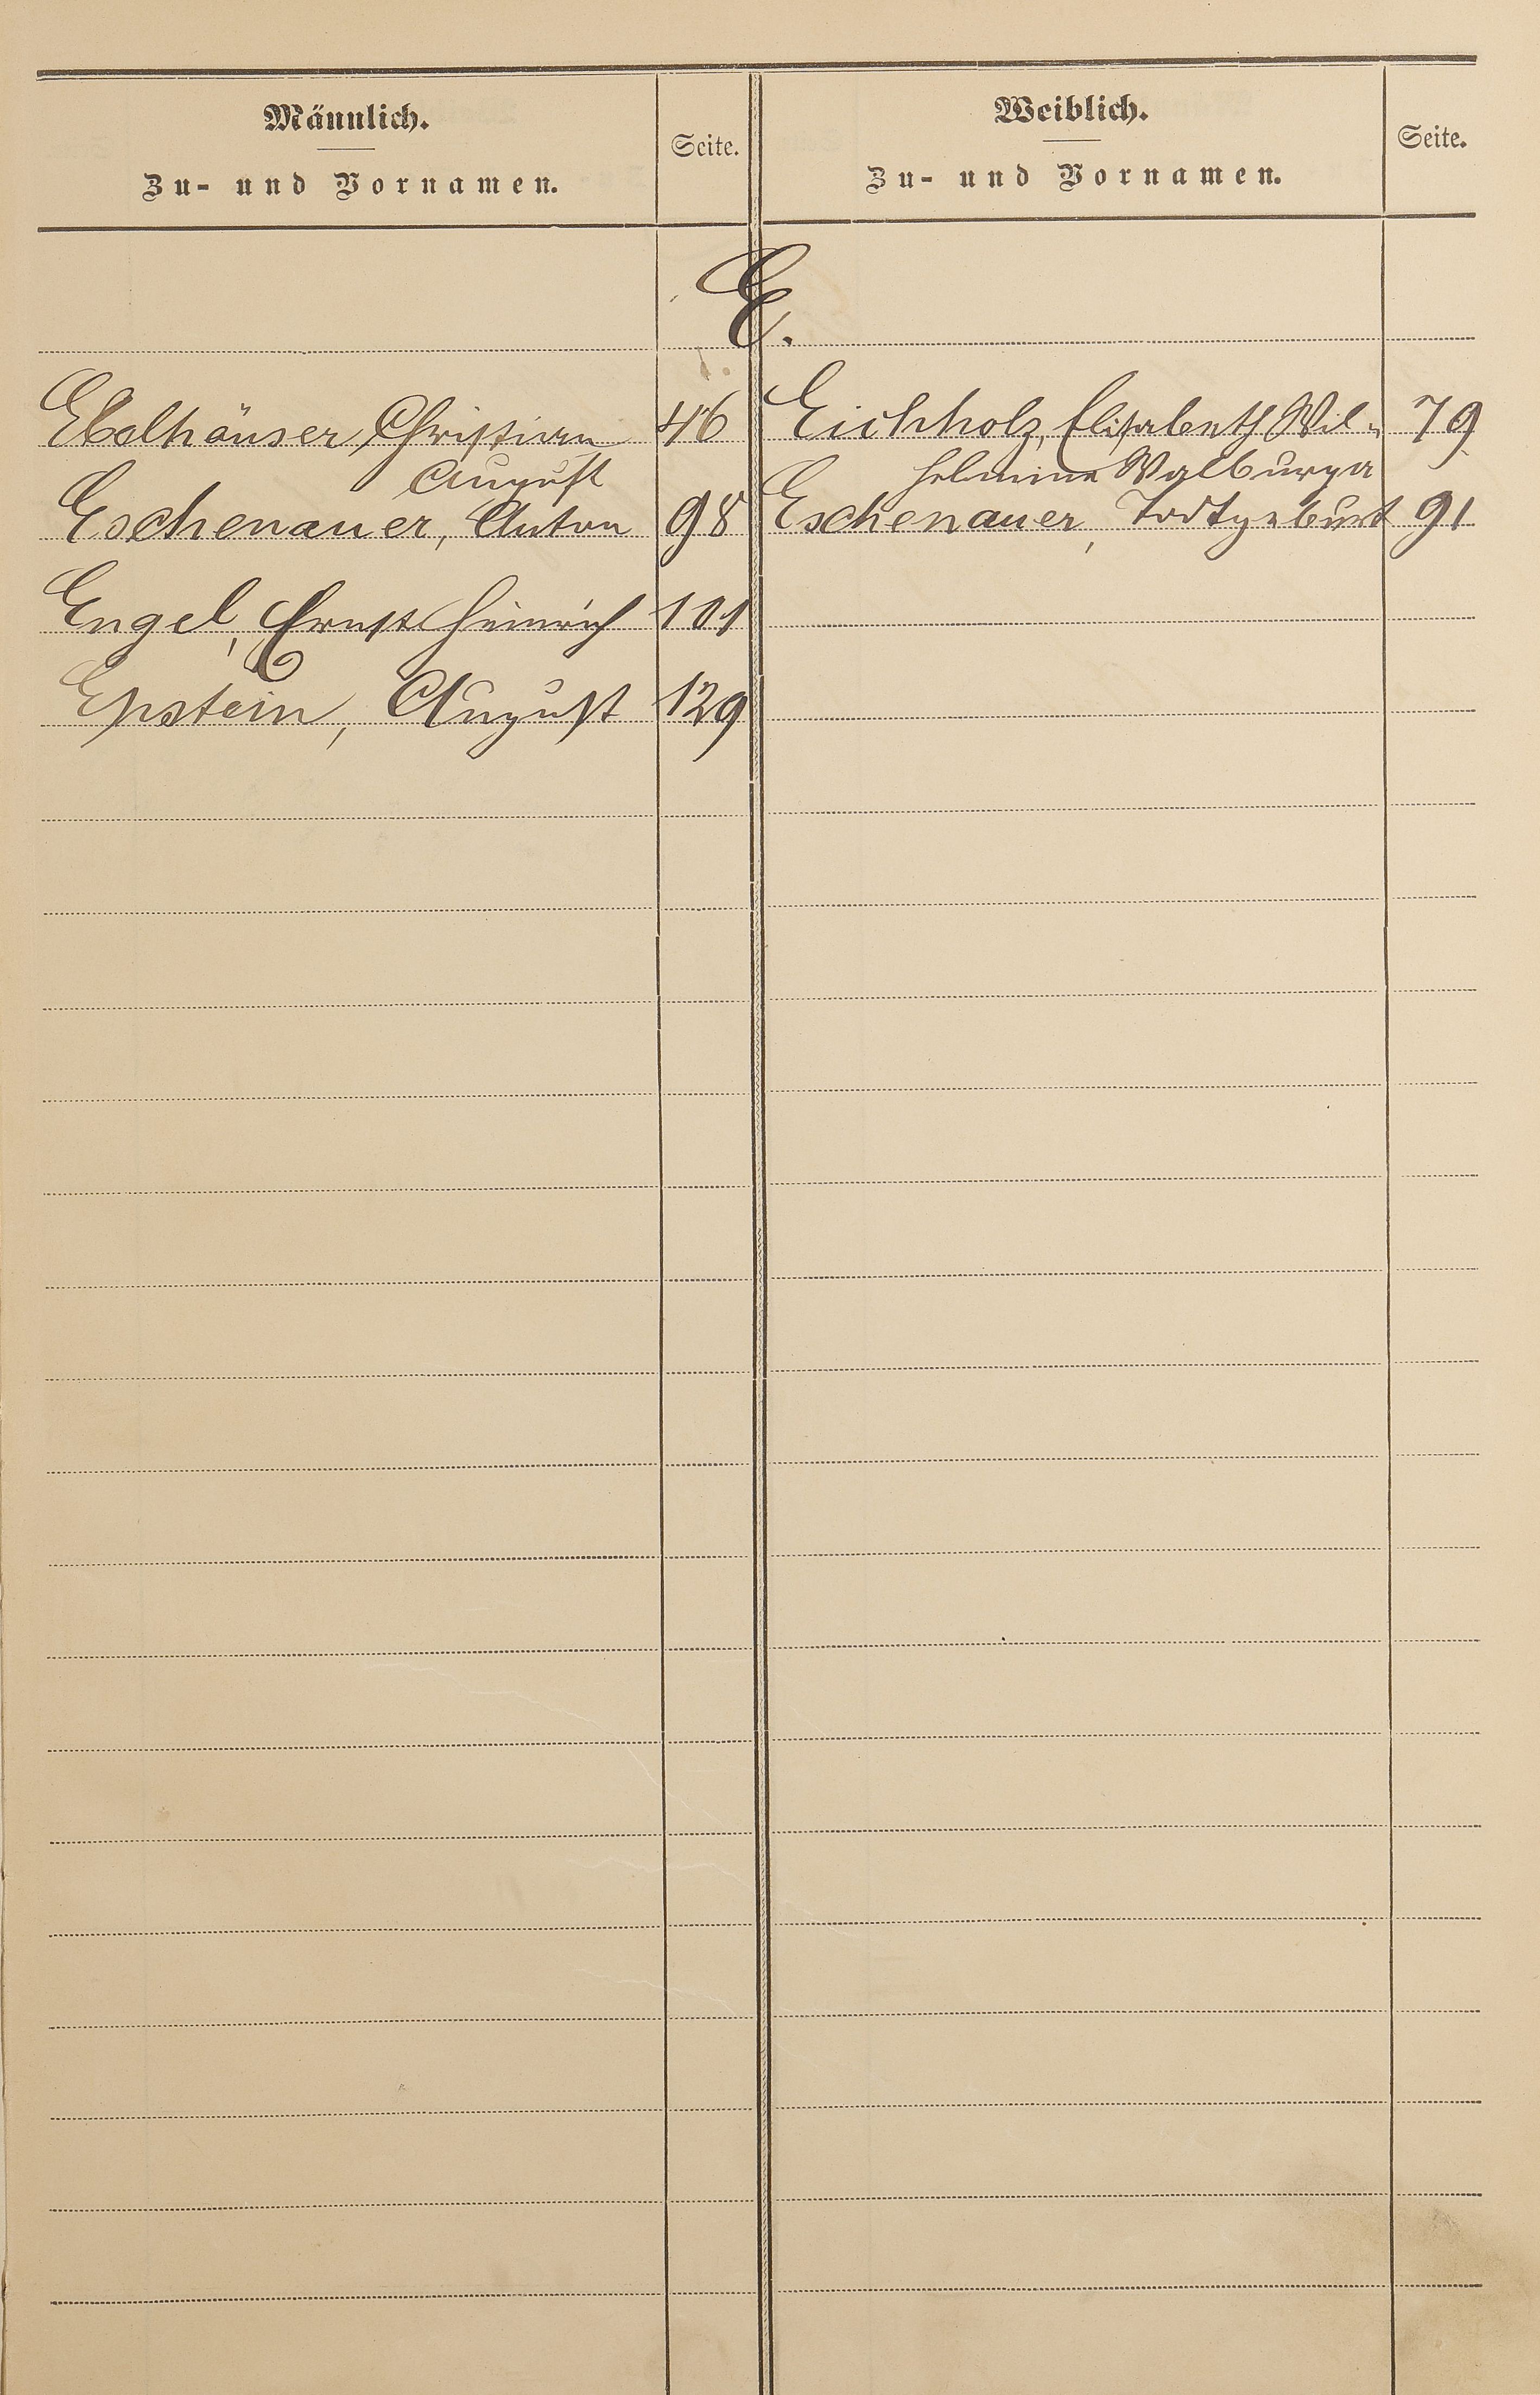 Männlich.
Zu- und Vornamen.
Seite.
Weiblich.
Zu- und Vornamen.
Seite.
E.
Ebelhäuser, Christian 46
August
Eschenauer, Anton 98
Engel, Ernst Heinrich 101
Epstein, August 129
Eichholz, Elisabeth Wil-, 79
helmine Walburga
Eschenauer, Todtgeburt 91